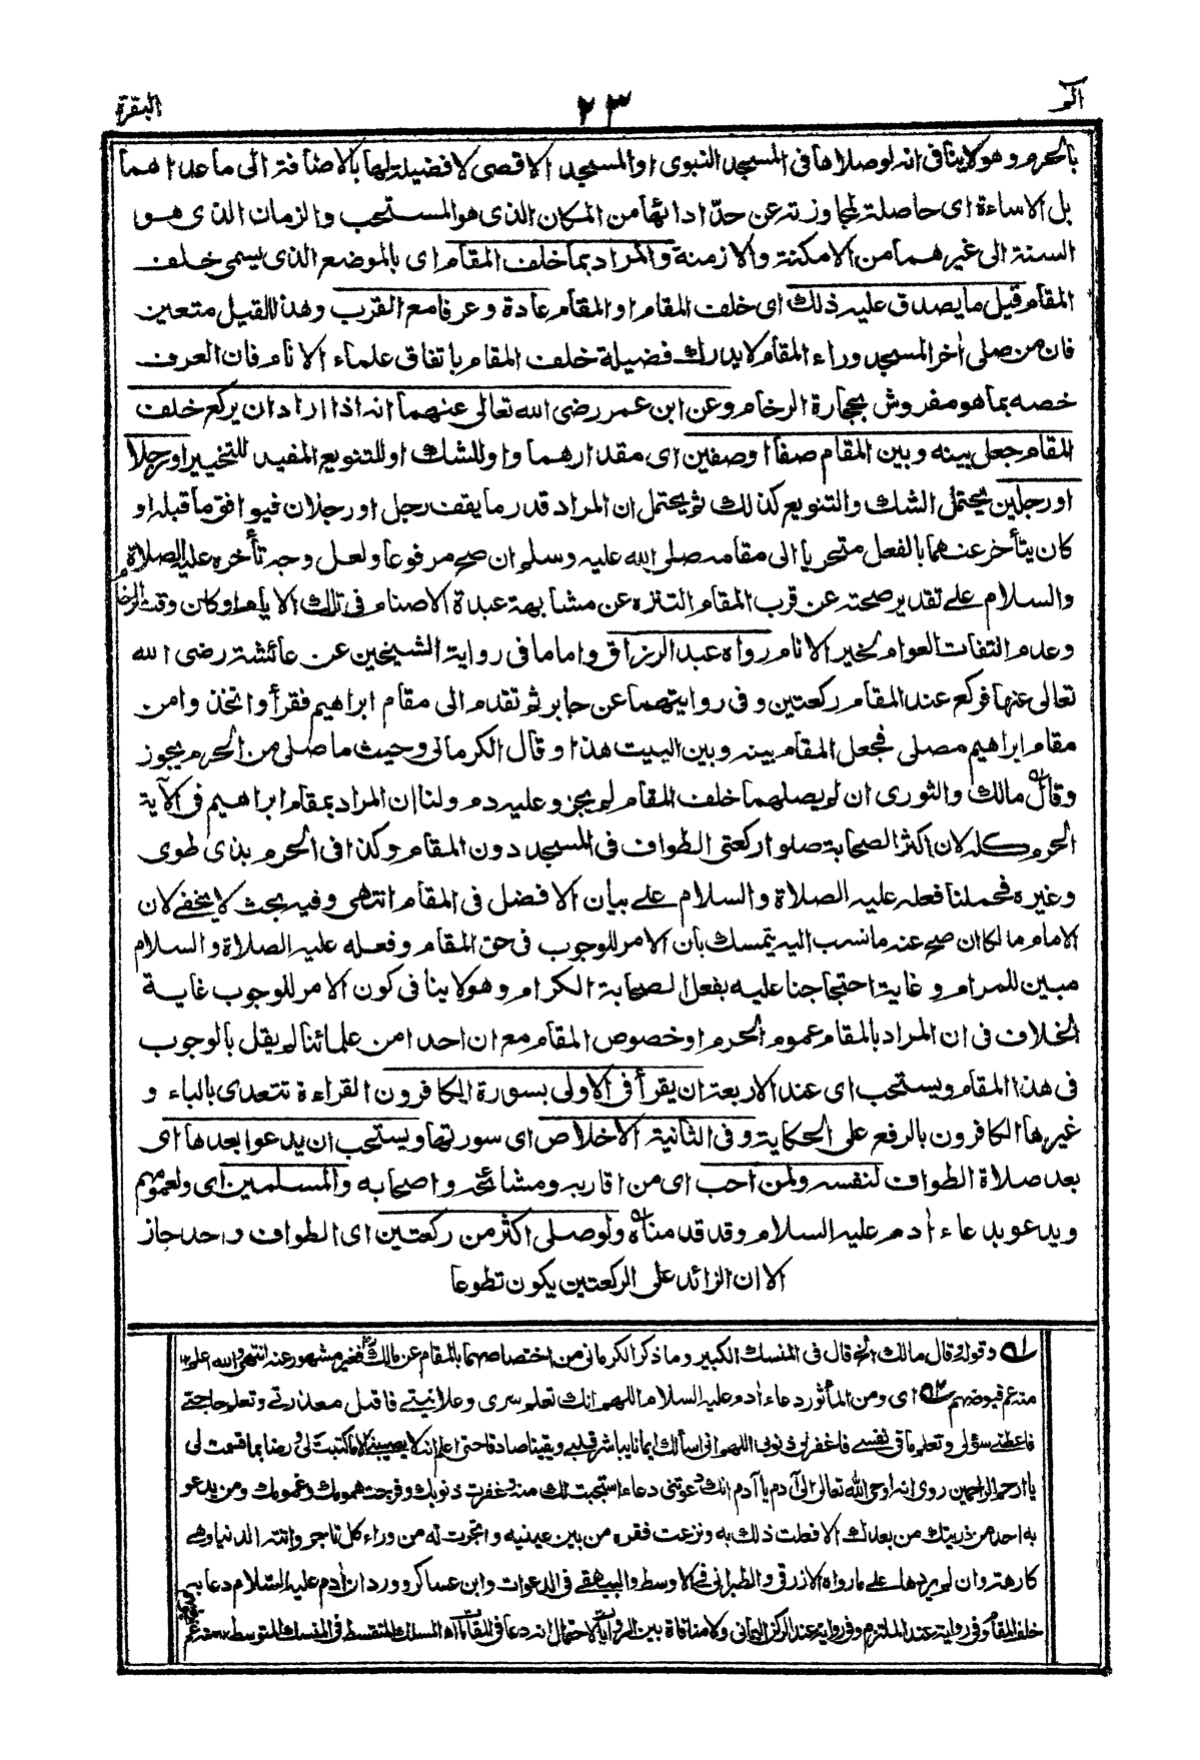 الٓمٓ
٢٣
البقرة
بالحرم وهو لا ينافى انه لو صلاها فى المسجد النبوى او المسجد الاقصى لا فضيلة لها بالاضافة الى ما عداهما
بل الاساءة اى حاصلة لمجاوزته عن حد ادائها من المكان الذى هو المستحب والزمان الذى هو
السنة الى غيرهما من الامكنة والازمنة والمراد بما خلف المقام اى بالموضع الذى يسمى خلف
المقام قيل ما يصدق عليه ذلك اى خلف المقام او المقام عادة وعرفا مع القرب وهذا القيل متعين
فان من صلى اٰخر المسجد وراء المقام لا يدرك فضيلة خلف المقام باتفاق علماء الانام فان العرف
خصه بما هو مفروش بحجارة الرخام وعن ابن عمر رضى الله تعالى عنهما انه اذا اراد ان يركع خلف
المقام جعل بينه وبين المقام صفا او صفين اى مقدارهما واو للشك او للتنويع المفيد للتخيير او رجلا
او رجلين يحتمل الشك والتنويع كذلك ثم يحتمل ان المراد قدر ما يقف رجل او رجلان فيوافق ما قبله او
كان يتأخر عنهما بالفعل متحريا الى مقامه صلى الله عليه وسلم ان صح مرفوعا ولعل وجه تأخره عليه الصلاة
والسلام على تقدير صحته عن قرب المقام التنزه عن مشابهة عبدة الاصنام فى تلك الايام او كان وقت الزحام
وعدم التفات العوام لخير الانام رواه عبد الرزاق واما ما فى رواية الشيخين عن عائشة رضى الله
تعالى عنها فركع عند المقام ركعتين وفى روايتهما عن جابر ثم تقدم الى مقام ابراهيم فقرأ واتخذوا من
مقام ابراهيم مصلى فجعل المقام بينه وبين البيت هذا وقال الكرمانى وحيث ما صلى من الحرم يجوز
وقال مالك والثورى ان لم يصلهما خلف المقام لم يجز وعليه دم ولنا ان المراد بمقام ابراهيم فى الآية
الحرم كله لان اكثر الصحابة صلوا ركعتى الطواف فى المسجد دون المقام وكذا فى الحرم بذى طوى
وغيره فحملنا فعله عليه الصلاة والسلام على بيان الافضل فى المقام انتهى وفيه بحث لا يخفى لان
الامام مالكا ان صح عنه ما نسب اليه يتمسك بأن الامر للوجوب فى حق المقام وفعله عليه الصلاة والسلام
مبين للمرام وغاية احتجاجنا عليه بفعل الصحابة الكرام وهو لا ينافى كون الامر للوجوب غاية
الخلاف فى ان المراد بالمقام عموم الحرم او خصوص المقام مع ان احدا من علمائنا لم يقل بالوجوب
فى هذا المقام ويستحب اى عند الاربعة ان يقرأ فى الاولى بسورة الكافرون القراءة تتعدى بالباء و
غيرها الكافرون بالرفع على الحكاية وفى الثانية الاخلاص اى سورتها ويستحب ان يدعو بعدها اى
بعد صلاة الطواف لنفسه ولمن احب اى من اقاربه ومشائخه واصحابه والمسلمين اى ولعمومهم
ويدعو بدعاء اٰدم عليه السلام وقد قدمناه ولو صلى اكثر من ركعتين اى الطواف واحد جاز
الا ان الزائد على الركعتين يكون تطوعا
قوله وقال مالك الخ قال فى المنسك الكبير وما ذكر الكرمانى من اختصاصهما بالمقام عن مالك فغير مشهور عنه انتهى والله اعلم
منه عم فيوضهم اى ومن المأثور دعاء اٰدم عليه السلام اللهم انك تعلم سرى وعلانيتى فاقبل معذرتى وتعلم حاجتى
فاعطنى سؤلى وتعلم ما فى نفسى فاغفر لى ذنوبى اللهم انى اسألك ايمانا يباشر قلبى ويقينا صادقا حتى اعلم انه لا يصيبنى الا ما كتبت لى ورضا بما قسمت لى
يا ارحم الراحمين روى انه اوحى الله تعالى الى آدم يا آدم انك دعوتنى دعاء استجبت لك منه وغفرت ذنوبك وفرجت همومك وغمومك ومن يدعو
به احد من ذريتك من بعدك الا فعلت ذلك به ونزعت فقره من بين عينيه واتجرت له من وراء كل تاجر واتته الدنيا وهى
كارهة وان لم يردها على ما رواه الازرقى والطبرانى فى الاوسط والبيهقى فى الدعوات وابن عساكر وورد ان اٰدم عليه السلام دعا به
خلف المقام وفى رواية عند الملتزم وفى رواية عند الركن اليمانى ولا منافاة بين الروايات لاحتمال انه دعا فى المقامات اه المسلك المتقسط فى المنسك المتوسط منه عم